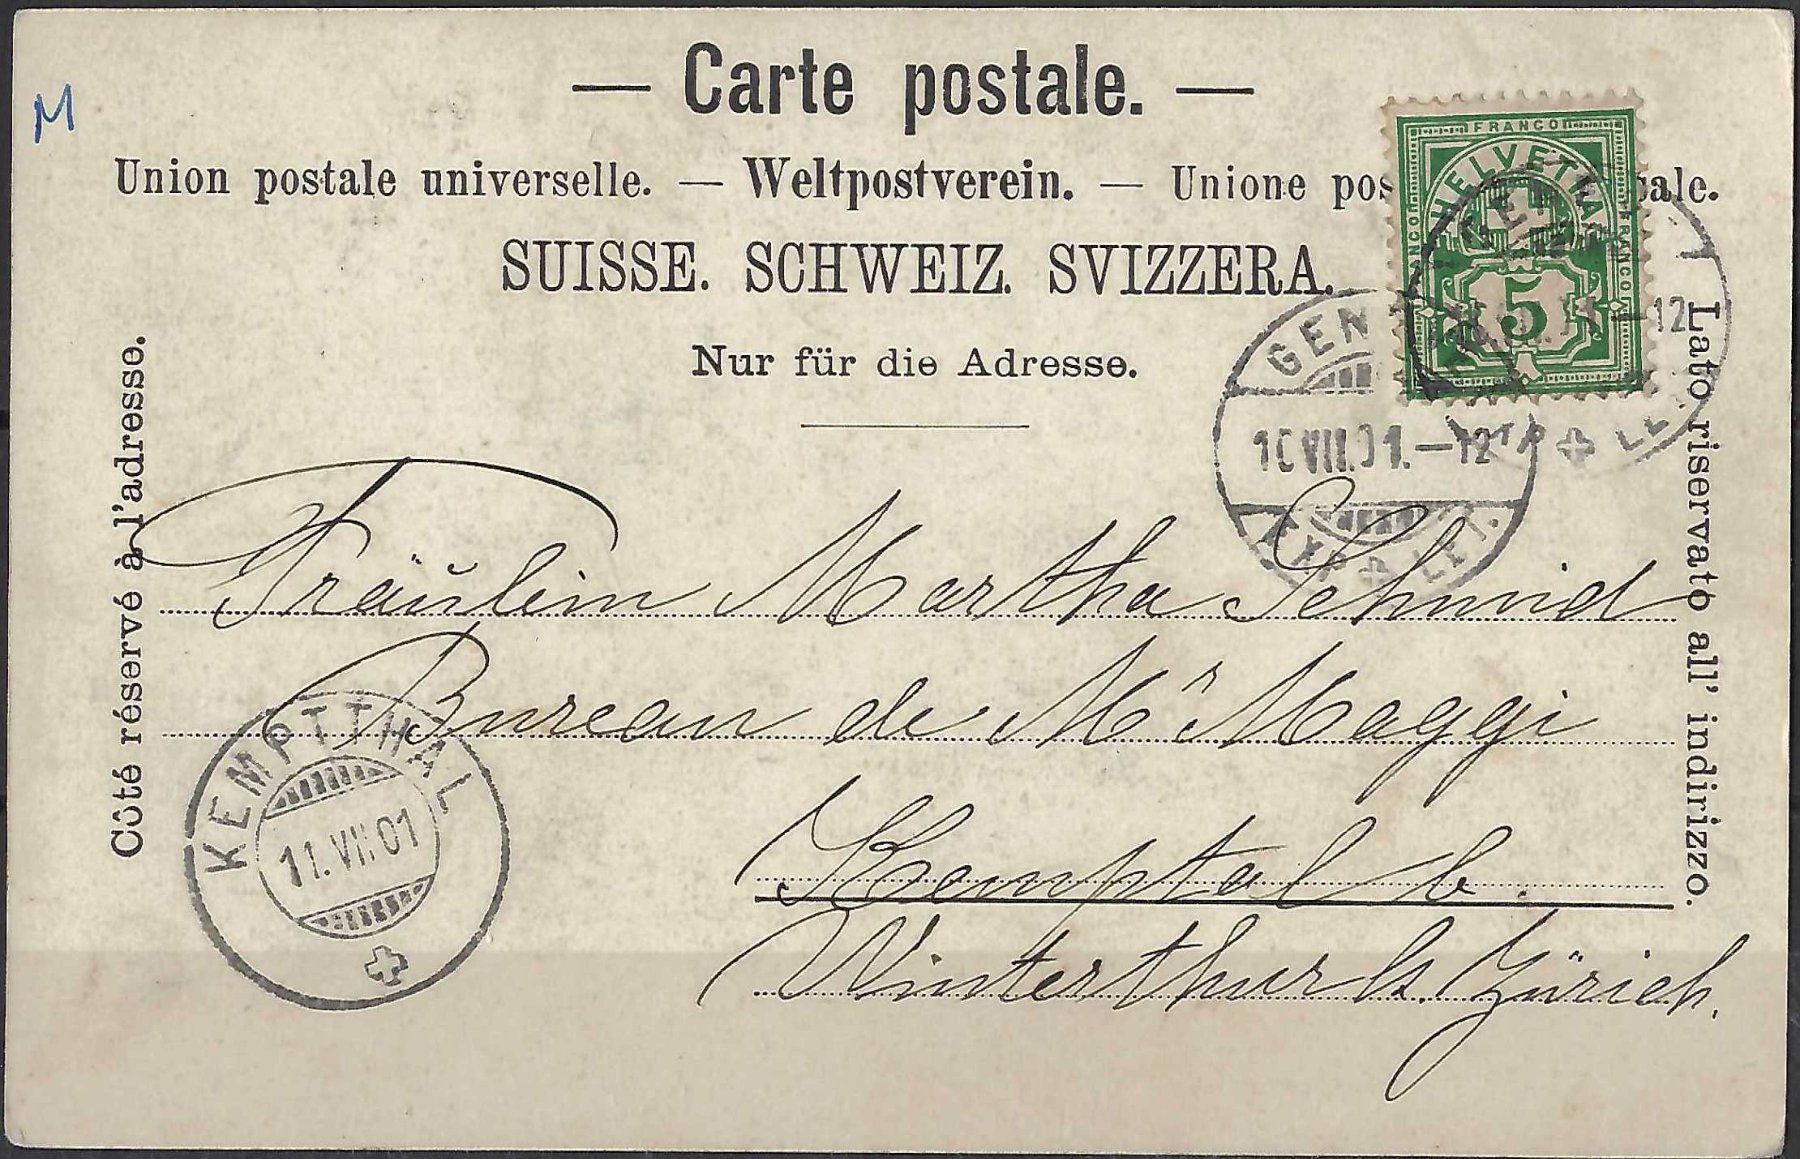 M
— Carte postale. —
Union postale universelle. — Weltpostverein. — Unione pos ale.
SUISSE. SCHWEIZ. SVIZZERA.
Nur für die Adresse.
Côté réservé à l'adresse.
Lato riservato all' indirizzo.
FRANCO
HELVETIA
FRANCO
5
GEN
10 VII.01.–12
EXP LET.
–12
Fräulein Martha Schmid
Bureau de Mr Maggi
Kemptal b.
Winterthur k. Zürich.
KEMPTTHAL
11.VII.01